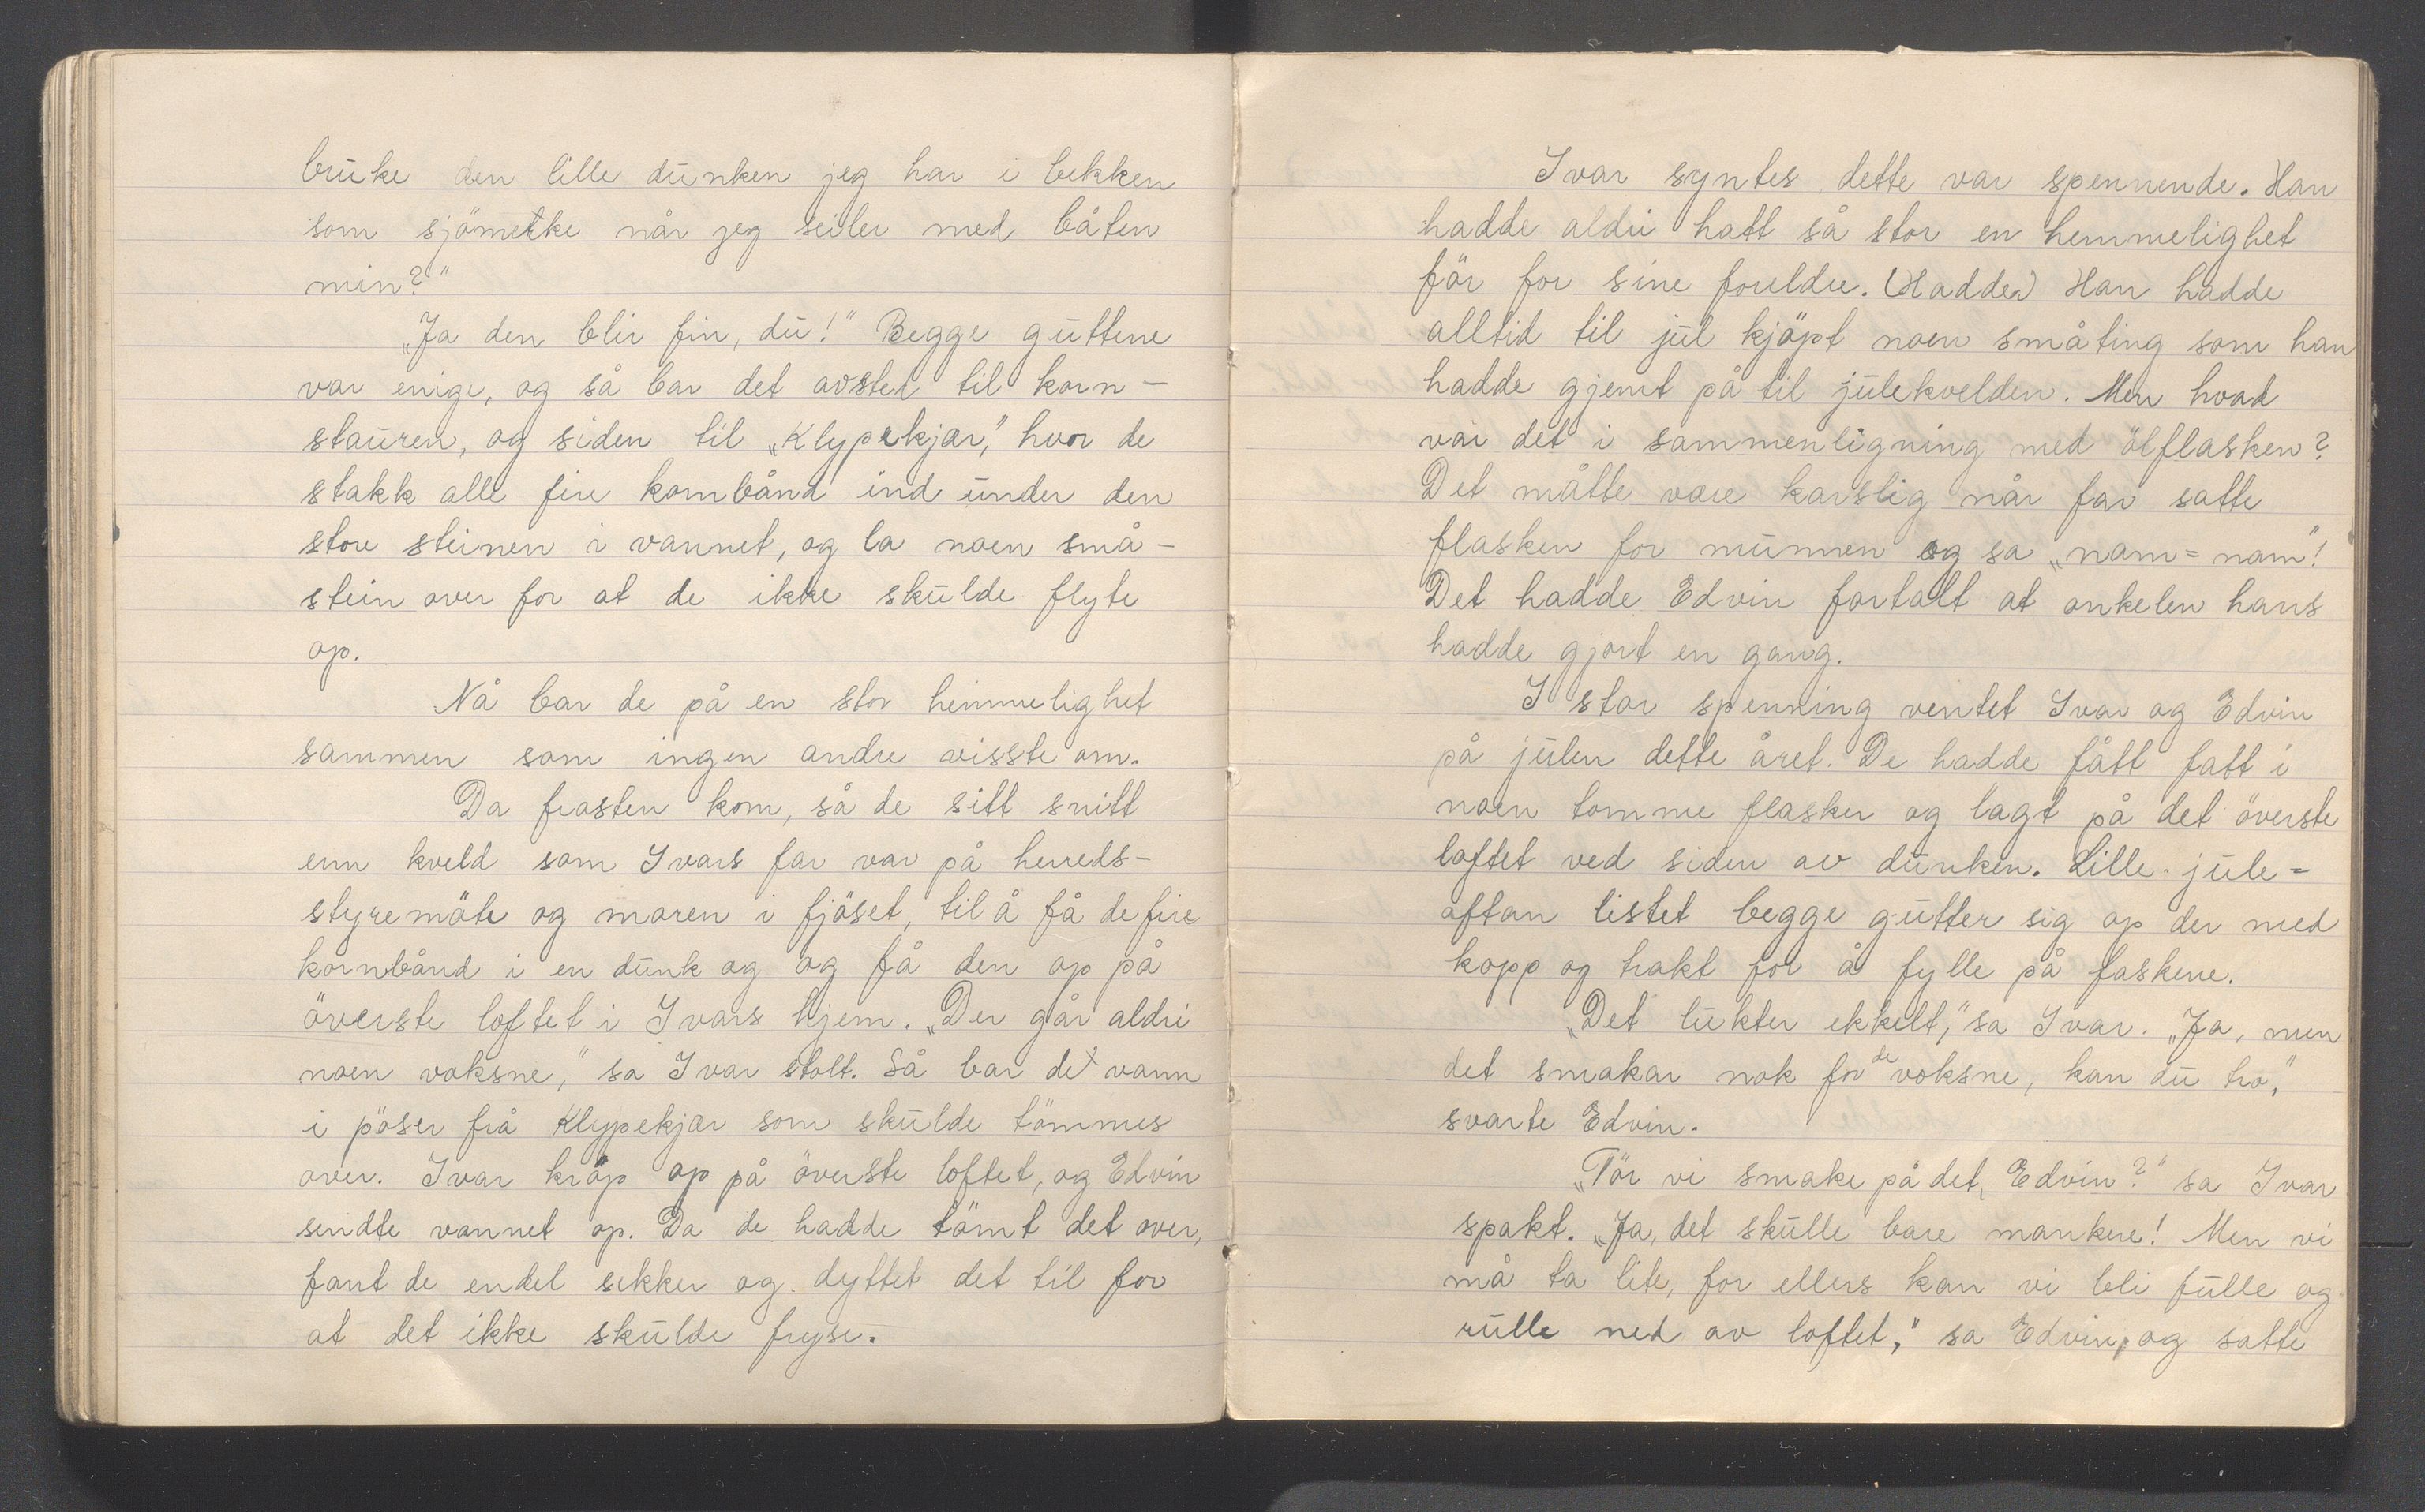 bruke den lille dunken jeg har i bekken
som sjömerke når jeg seiler med båten
min?"
„Ja den blir fin, du!" Begge guttene
var enige, og så bar det avsted til korn-
stauren, og siden til „Klypekjær," hvor de
stakk alle fire kornbånd ind under den
store steinen i vannet, og la noen små-
stein over for at de ikke skulde flyte
op.
Nå bar de på en stor hemmelighet
sammen som ingen andre visste om.
Da frosten kom, så de sitt snitt
enn kveld som Ivars far var på herreds-
styremöte og moren i fjöset, til å få de fire
kornbånd i en dunk og og få den op på
överste loftet i Ivars hjem. „Der går aldri
noen voksne," sa Ivar stolt. Så bar det vann
i pöser frå Klypekjær som skulde tömmes
over. Ivar kröp op på överste loftet, og Edvin
sendte vannet op. Da de hadde tömt det over,
fant de endel sekker og dyttet det til for
at det ikke skulde fryse.
Ivar syntes dette var spennende. Han
hadde aldri hatt så stor en hemmelighet
för for sine foreldre. (Hadde) Han hadde
alltid til jul kjöpt noen småting som han
hadde gjemt på til julekvelden. Men hvad
var det i sammenligning med ölflasken?
Det måtte være karslig når far satte
flasken for munnen og sa „nam=nam"!
Det hadde Edvin fortalt at onkelen hans
hadde gjort en gang.
I stor spenning ventet Ivar og Edvin
på julen dette året. De hadde fått fatt i
noen tomme flasker og lagt på det överste
loftet ved siden av dunken. Lille-jule=
aftan listet begge gutter sig op der med
kopp og trakt for å fylle på faskene.
„Det lukter ekkelt," sa Ivar. „Ja, men
det smakar nok for de voksne, kan du tro,"
svarte Edvin.
„Tör vi smake på det, Edvin?" sa Ivar
spakt. „Ja, det skulle bare mankere! Men vi
må ta lite, for ellers kan vi bli fulle og
rulle ned av loftet," sa Edvin, og satte